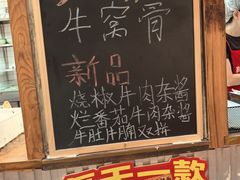 牛窝骨
新品
烧椒牛肉杂酱
烂番茄牛肉杂酱
牛肚牛腩双拼
一款